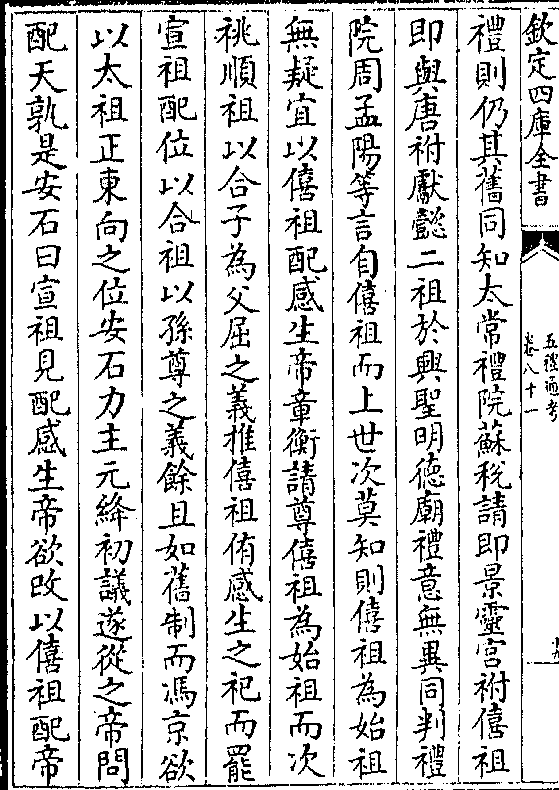 欽定四庫全書
五禮通考
卷八十一
禮則仍其舊同知太常禮院蘇稅請即景靈宮祔僖祖
即與唐祔獻懿二祖於興聖明德廟禮意無異同判禮
院周孟陽等言自僖祖而上世次莫知則僖祖為始祖
無疑宜以僖祖配感生帝章衡請尊僖祖為始祖而次
祧順祖以合子為父屈之義推僖祖侑感生之祀而罷
宣祖配位以合祖以孫尊之義餘且如舊制而馮京欲
以太祖正東向之位安石力主元絳初議遂從之帝問
配天孰是安石曰宣祖見配感生帝欲改以僖祖配帝